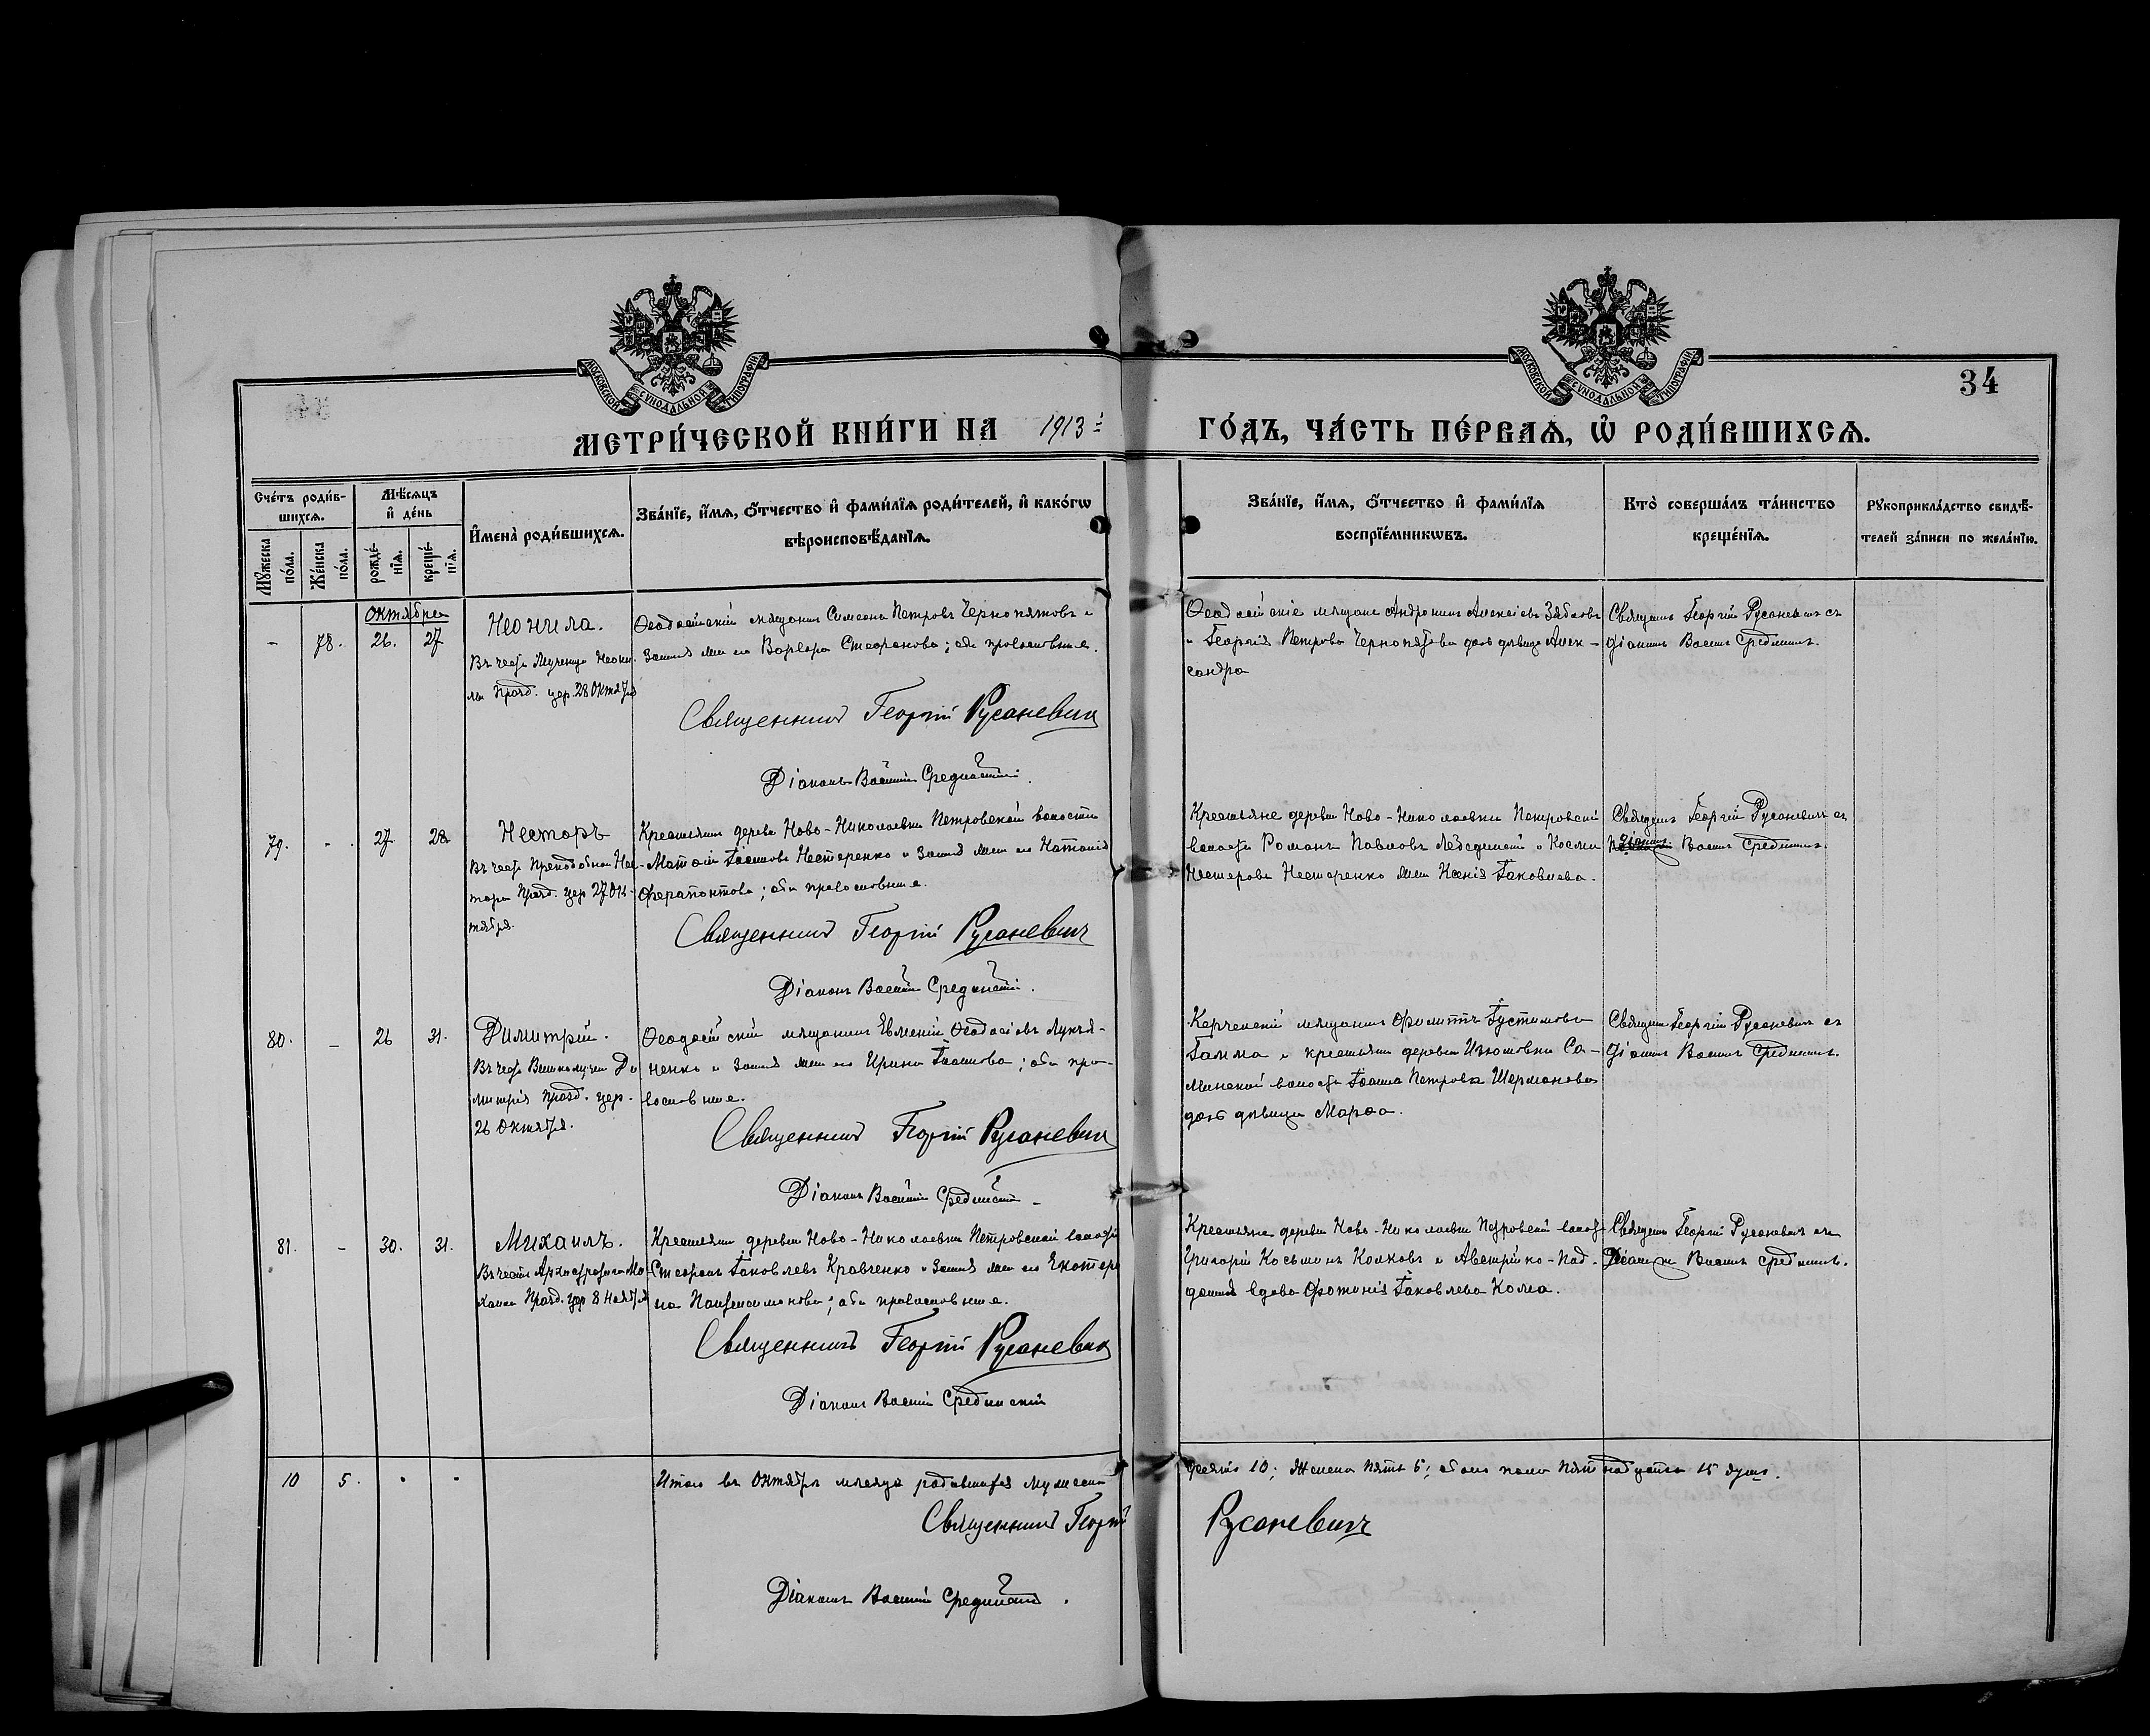 МОСКОВСКОЙ СѴНОДАЛЬНОЙ ТИПОГРАФІИ
МОСКОВСКОЙ СѴНОДАЛЬНОЙ ТИПОГРАФІИ
34
МЕТРИ́ЧЕСКОЙ КНИ́ГИ НА 1913 ГО́ДЪ, ЧА́СТЬ ПЕ́РВАѦ, Ѡ҆ РОДИ́ВШИХСѦ.
Сче́тъ роди́в-
шихсѧ.
Мꙋ́жеска
по́ла.
Же́нска
по́ла.
Мѣ́сѧцъ
и҆ де́нь
рожде́-
нїѧ.
креще́-
нїѧ.
И҆мена̀ роди́вшихсѧ.
Зва́нїе, и҆́мѧ, ѻ҆́тчество и҆ фами́лїѧ роди́телей, и҆ како́гѡ
вѣроисповѣ́данїѧ.
Зва́нїе, и҆́мѧ, ѻ҆́тчество и҆ фами́лїѧ
воспрїе́мникѡвъ.
Кто̀ соверша́лъ та́инство
креще́нїѧ.
Рꙋкоприкла́дство свидѣ́-
телей за́писи по жела́нїю.
Октября
- 78. 26. 27
Неонила.
Въ честь Мученицы Неони-
лы Празд. цер. 28 Октября
Ѳеодосійскій мѣщанинъ Симеонъ Петровъ Чернопятовъ и
Варвара Стефанова; оба православные.
Священникъ Георгій Русаневичъ
Діаконъ Василій Срединскій.
Ѳеодосійскіе мѣщане Андроникъ Алексіевъ Зябловъ
и Георгія Петрова Чернопятова дочь дѣвица Алек-
сандра
Священ. Георгій Русаневичъ съ
діаконом Василіем Срединскимъ.
79. - 27 28.
Несторъ
Въ честь Преподобнаго Нес-
тора Празд. цер 27 Ок-
тября.
Крестьянинъ деревни Ново-Николаевки Петровской волости
Нестеренко и Наталія
Ферапонтова; оба православные.
Священникъ Георгій Русаневичъ
Діаконъ Василій Срединскій.
Крестьяне деревни Ново-Николаевки Петровской
волости Романъ Павловъ и Космы
Нестерова Нестеренко жена Ксенія Іаковлева.
Священ. Георгій Русаневичъ съ
діакон. Василіем Срединскимъ.
80. - 26 31.
Димитрій.
Въ честь Великомучен Ди-
митрія Празд. цер.
26 Октября.
Ѳеодосійскій мѣщанинъ Евменій Ѳеодосіевъ Лукья-
ненко и Ирина; оба пра-
вославные.
Священникъ Георгій Русаневичъ
Діаконъ Василій Срединскій
Керченскій мѣщанинъ Филиппъ Іустиновъ
Галла и крестьянина деревни Изюмовки Са-
линской волости Іоанна Петрова Шерманова
дочь дѣвица Марфа.
Священ Георгій Русаневичъ съ
діакон Василіем Срединскимъ.
81. - 30. 31.
Михаилъ.
Въ честь Архистратига Ми-
хаила Празд. цер 8 Ноября
Крестьянинъ деревни Ново-Николаевки Петровской волости
Стефанъ Іаковлевъ Кравченко и Екатери-
на; оба православные.
Священникъ Георгій Русаневичъ
Діаконъ Василій Срединскій
Крестьяне деревни Ново-Николаевки Петровской волос.
Григорій Косьминъ Колковъ и Австрійско-Под-
данная вдова Фотинія Іаковлева
Священ Георгій Русаневичъ съ
Діакон Василіем Срединскимъ.
10 5.
Итого въ Октябрѣ мѣсяцѣ родившихся мужеска десять 10; Женска пять 5; обоего пола пятнадцать 15 душъ.
Священникъ Георгій Русаневичъ
Діаконъ Василій Срединскій.